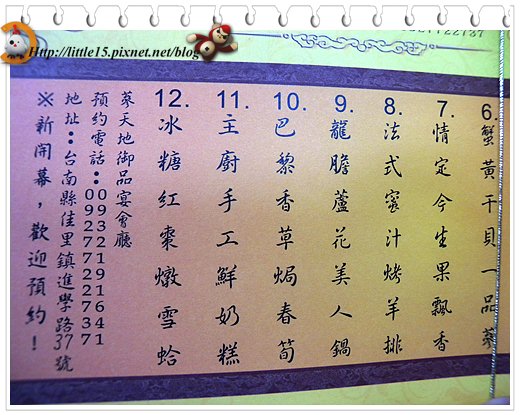 Http://little15.pixnet.net/blog
6. 蟹黃干貝一品葵
7. 情定今生果飄香
8. 法式蜜汁烤羊排
9. 龍膽蘆花美人鍋
10. 巴黎香草焗春筍
11. 主廚手工鮮奶糕
12. 冰糖紅棗燉雪蛤
葵天地御品宴會廳
預約電話：0932191641
0927722737
地址：台南縣佳里鎮進學路37號
※新開幕，歡迎預約！